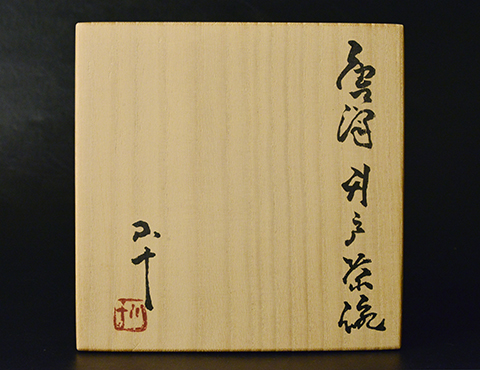 唐津 井戸茶碗
小十